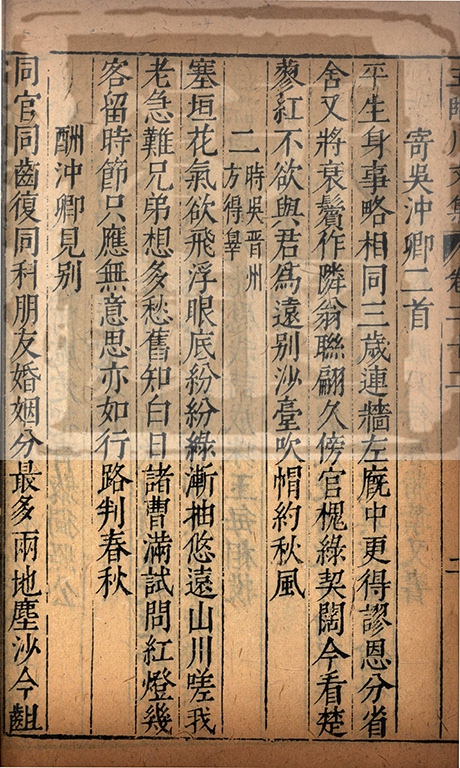 王臨川文集 卷二十二
二
寄吳沖卿二首
平生身事略相同三歲連牆左廐中更得謬恩分省
舍又將衰鬢作隣翁聯翩久傍官槐綠契闊今看楚
蓼紅不欲與君爲遠别沙臺吹帽約秋風
二
時吳晋州
方得辠
塞垣花氣欲飛浮眼底紛紛綠漸抽悠遠山川嗟我
老急難兄弟想多愁舊知白日諸曹滿試問紅燈幾
客留時節只應無意思亦如行路判春秋
酬沖卿見别
同官同齒復同科朋友婚姻分最多兩地塵沙今齟